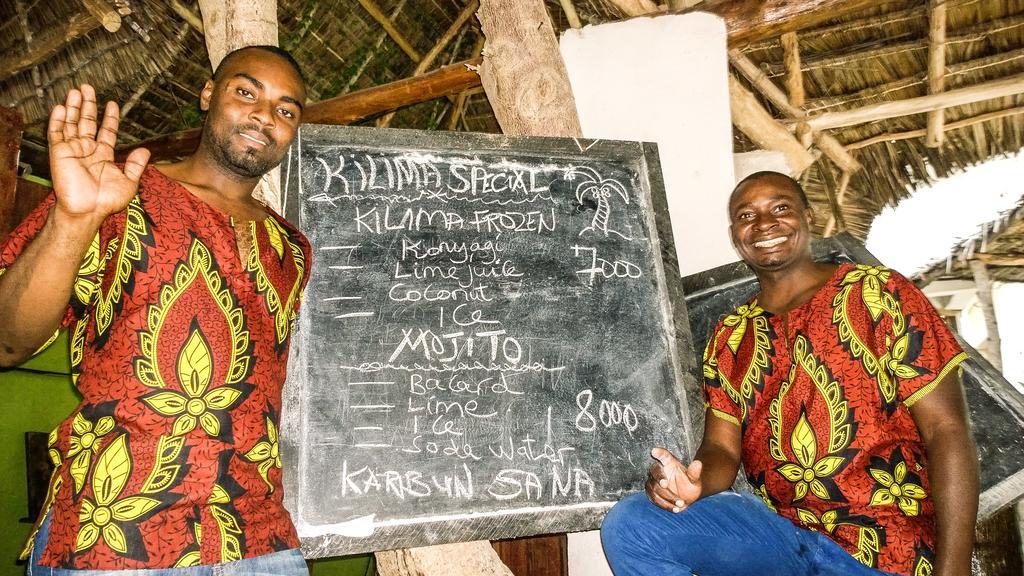 KILIMA SPECIAL
KILIMA FROZEN
- Konyagi
- Lime juice 7000
- Coconut
- Ice
MOJITO
- Bacard
- Lime
- Ice 8000
- Soda Water
KARIBUN SANA